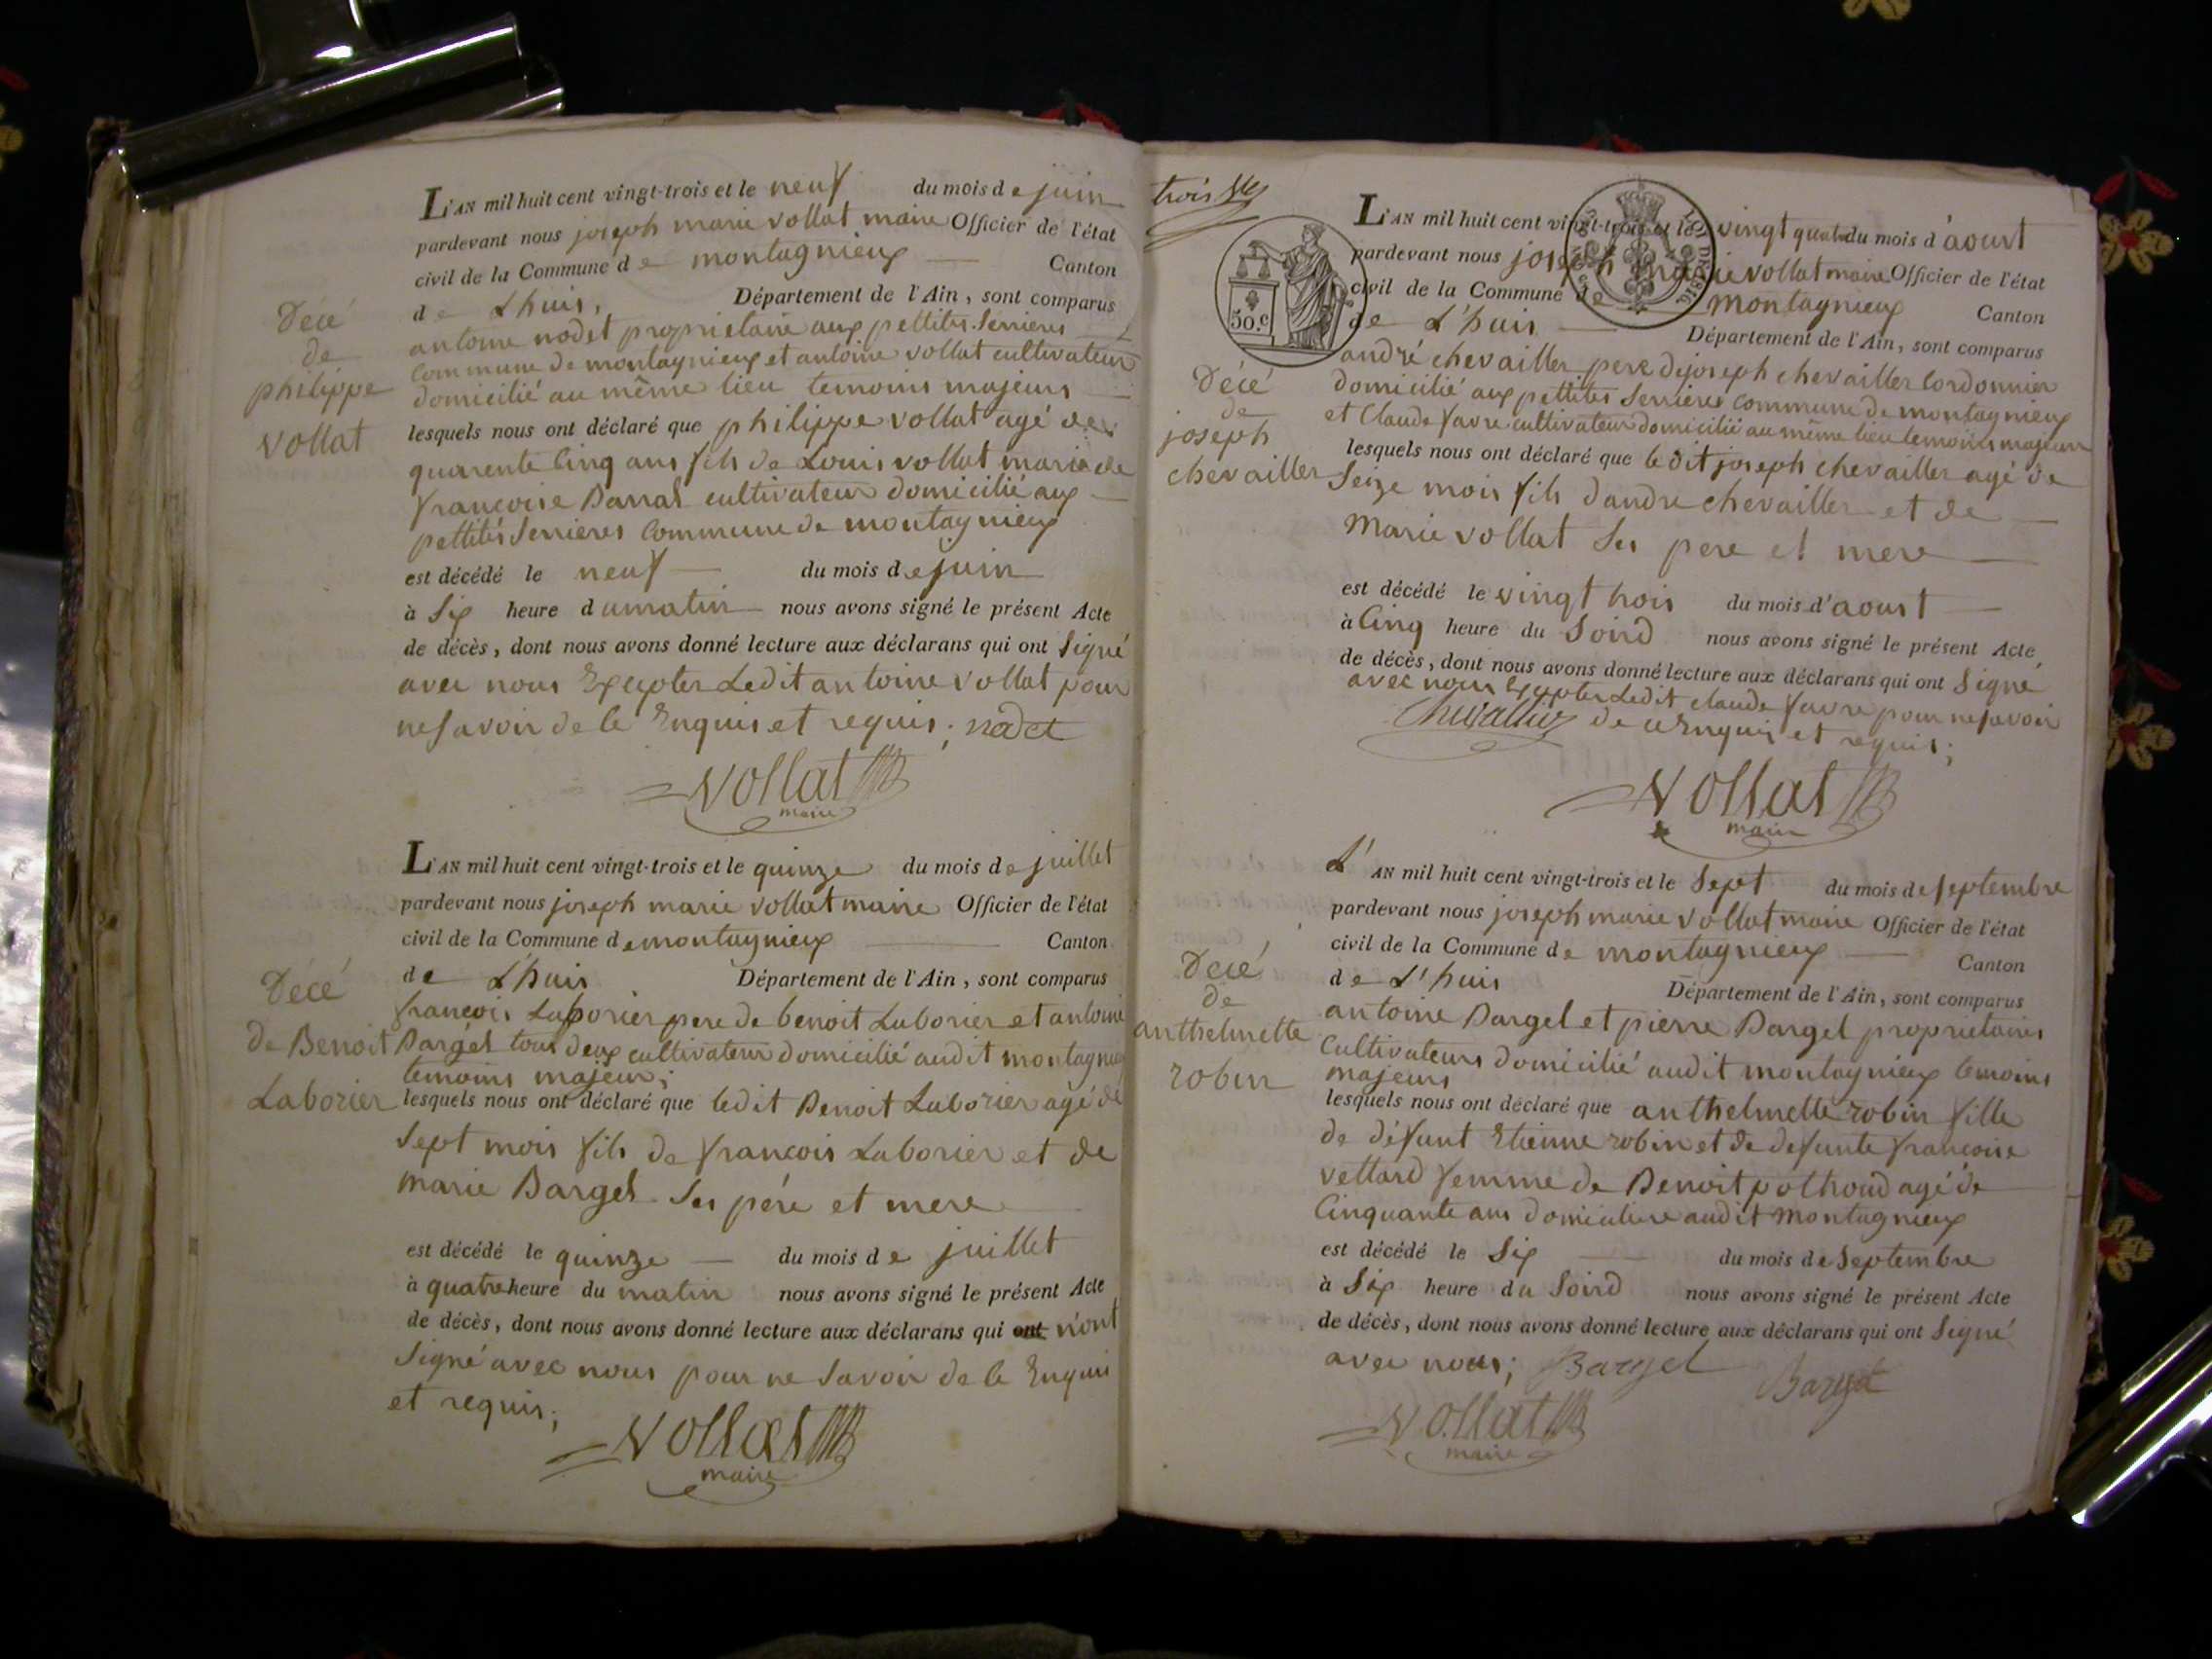 L'AN mil huit cent vingt-trois et le neuf du mois de juin
pardevant nous joseph marie vollat maire Officier de l'état
civil de la Commune de montagnieux Canton
de L'huis, Département de l'Ain, sont comparus
antoine nodet proprietaire aux pettites Serrieres
Commune de montagnieux et antoine vollat cultivateur
domicilié au même lieu temoins majeurs
lesquels nous ont déclaré que philippe vollat agé de
quarente Cinq ans fils de Louis vollat marie de
françoise Barral cultivateur domicilié aux
pettites Serrieres Commune de montagnieux
est décédé le neuf du mois de juin
à Six heure du matin nous avons signé le présent Acte
de décès, dont nous avons donné lecture aux déclarans qui ont Signé
avec nous Excepter Ledit antoine vollat pour
ne Savoir de Ce Enquis et requis; nodet
vollat
maire
Décé
de
philippe
vollat
L'AN mil huit cent vingt-trois et le quinze du mois de juillet
pardevant nous joseph marie vollat maire Officier de l'état
civil de la Commune de montagnieux Canton
de L'huis Département de l'Ain, sont comparus
françois Laborier pere de benoit Laborier et antoine
Bargel tous deux cultivateur domicilié audit montagnieux
temoins majeur;
lesquels nous ont déclaré que ledit Benoit Laborier agé de
Sept mois fils de françois Laborier et de
marie Bargel Ses père et mere
est décédé le quinze du mois de juillet
à quatre heure du matin nous avons signé le présent Acte
de décès, dont nous avons donné lecture aux déclarans qui ont n'ont
Signé avec nous pour ne Savoir de Ce Enquis
et requis;
vollat
maire
Décé
de Benoit
Laborier
trois
50.c
L'AN mil huit cent vingt-trois et le vingt quatre du mois d'aoust
pardevant nous joseph marie vollat maire Officier de l'état
civil de la Commune de montagnieux Canton
de L'huis Département de l'Ain, sont comparus
andré chevailler pere de joseph chevailler Cordonnier
domicilié aux pettites Serrieres Commune de montagnieux
et Claude favre cultivateur domicilié au même lieu temoins majeurs
lesquels nous ont déclaré que ledit joseph chevailler agé de
Seize mois fils dandre chevailler et de
Marie vollat Ses pere et mere
est décédé le vingt trois du mois d'aoust
à Cinq heure du Soird nous avons signé le présent Acte
de décès, dont nous avons donné lecture aux déclarans qui ont Signé
avec nous Excepter Ledit claude favre pour ne Savoir
de ce Enquis et requis;
vollat
maire
Décé
de
joseph
chevailler
L'AN mil huit cent vingt-trois et le Sept du mois de Septembre
pardevant nous joseph marie vollat maire Officier de l'état
civil de la Commune de montagnieux Canton
de L'huis Département de l'Ain, sont comparus
antoine Bargel et pierre Bargel proprietaires
Cultivateurs domicilié audit montagnieux temoins
majeurs
lesquels nous ont déclaré que anthelmette robin fille
de défunt Etienne robin et de defunte françoise
vettard femme de Benoit pothoud agé de
Cinquante ans domiciliée audit Montagnieux
est décédé le Six du mois de Septembre
à Six heure du Soird nous avons signé le présent Acte
de décès, dont nous avons donné lecture aux déclarans qui ont Signé
avec nous; Bargel Bargel
vollat
maire
Décé
de
anthelmette
robin